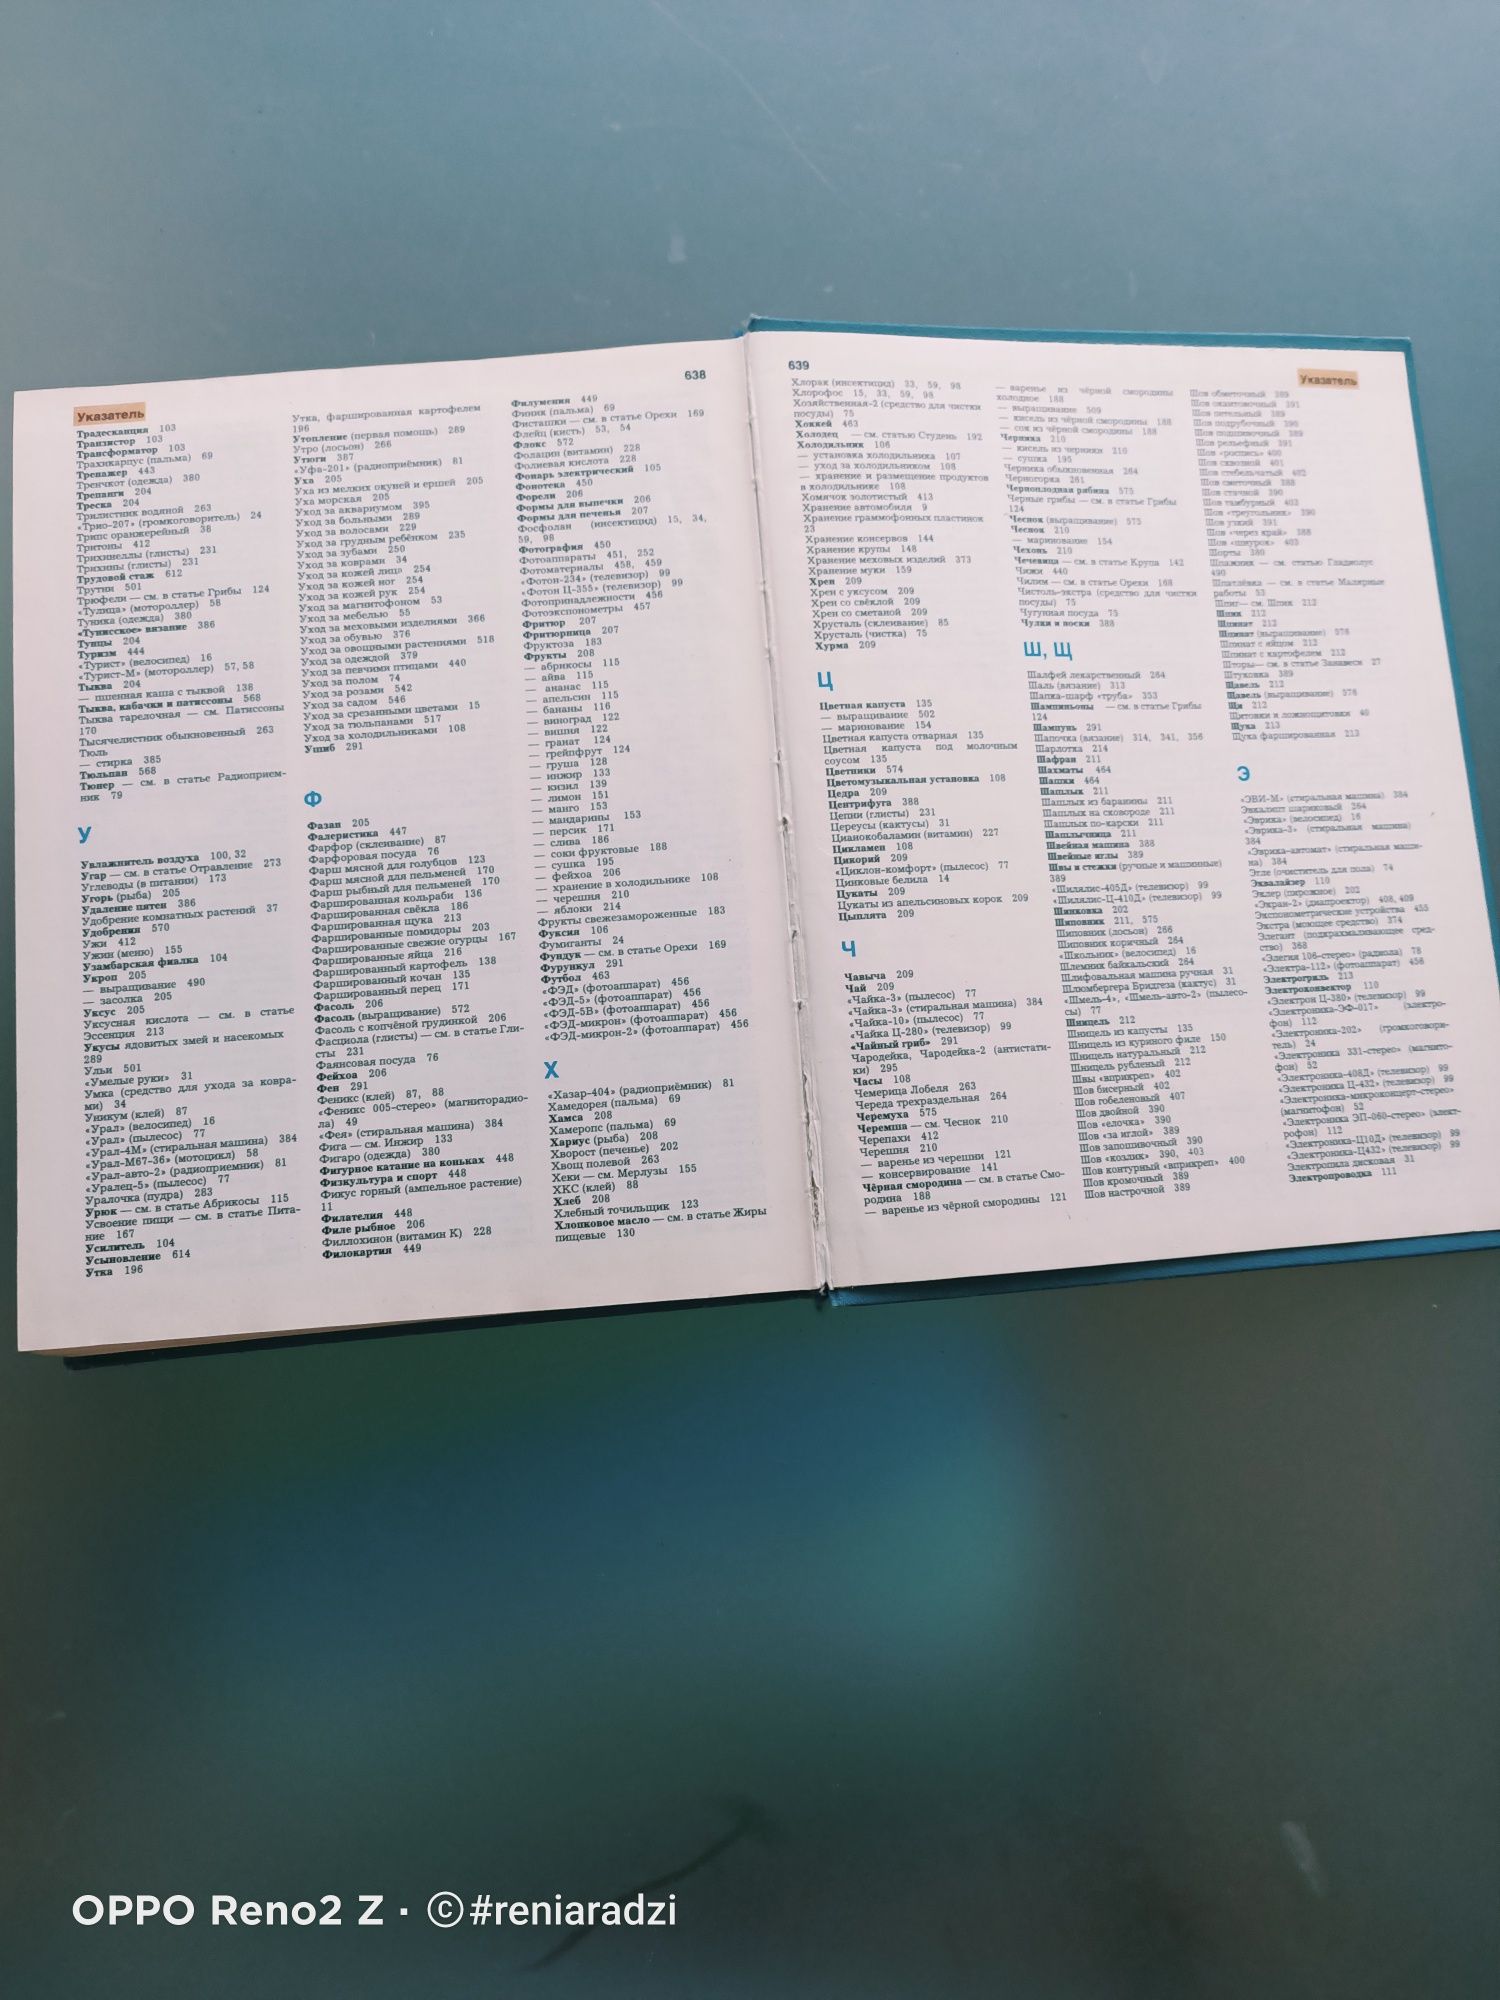 638
Указатель
Традесканция 103
Транзистор 103
Трансформатор 103
Трахикарпус (пальма) 69
Тренажер 443
Тренчкот (одежда) 380
Трепанги 204
Треска 204
Трилистник водяной 263
«Трио-207» (громкоговоритель) 24
Трипс оранжерейный 38
Тритоны 412
Трихинеллы (глисты) 231
Трихины (глисты) 231
Трудовой стаж 612
Трутни 501
Трюфели — см. в статье Грибы 124
«Тулица» (мотороллер) 58
Туника (одежда) 380
«Тунисское» вязание 386
Тунцы 204
Туризм 444
«Турист» (велосипед) 16
«Турист-М» (мотороллер) 57, 58
Тыква 204
— пшенная каша с тыквой 138
Тыква, кабачки и патиссоны 568
Тыква тарелочная — см. Патиссоны
170
Тысячелистник обыкновенный 263
Тюль
— стирка 385
Тюльпан 568
Тюнер — см. в статье Радиоприем-
ник 79
У
Увлажнитель воздуха 100, 32
Угар — см. в статье Отравление 273
Углеводы (в питании) 173
Угорь (рыба) 205
Удаление пятен 386
Удобрение комнатных растений 37
Удобрения 570
Ужи 412
Ужин (меню) 155
Узамбарская фиалка 104
Укроп 205
— выращивание 490
— засолка 205
Уксус 205
Уксусная кислота — см. в статье
Эссенция 213
Укусы ядовитых змей и насекомых
289
Ульи 501
«Умелые руки» 31
Умка (средство для ухода за ковра-
ми) 34
Уникум (клей) 87
«Урал» (велосипед) 16
«Урал» (пылесос) 77
«Урал-4М» (стиральная машина) 384
«Урал-М67-36» (мотоцикл) 58
«Урал-авто-2» (радиоприемник) 81
«Уралец-5» (пылесос) 77
Уралочка (пудра) 283
Урюк — см. в статье Абрикосы 115
Усвоение пищи — см. в статье Пита-
ние 167
Усилитель 104
Усыновление 614
Утка 196
Утка, фаршированная картофелем
196
Утопление (первая помощь) 289
Утро (лосьон) 266
Утюги 387
«Уфа-201» (радиоприёмник) 81
Уха 205
Уха из мелких окуней и ершей 205
Уха морская 205
Уход за аквариумом 395
Уход за больными 289
Уход за волосами 229
Уход за грудным ребёнком 235
Уход за зубами 250
Уход за коврами 34
Уход за кожей лица 254
Уход за кожей ног 254
Уход за кожей рук 254
Уход за магнитофоном 53
Уход за мебелью 55
Уход за меховыми изделиями 366
Уход за обувью 376
Уход за овощными растениями 518
Уход за одеждой 379
Уход за певчими птицами 440
Уход за полом 74
Уход за розами 542
Уход за садом 546
Уход за срезанными цветами 15
Уход за тюльпанами 517
Уход за холодильниками 108
Ушиб 291
Ф
Фазан 205
Фалеристика 447
Фарфор (склеивание) 87
Фарфоровая посуда 76
Фарш мясной для голубцов 123
Фарш мясной для пельменей 170
Фарш рыбный для пельменей 170
Фаршированная кольраби 136
Фаршированная свёкла 186
Фаршированная щука 213
Фаршированные помидоры 203
Фаршированные свежие огурцы 167
Фаршированные яйца 216
Фаршированный картофель 138
Фаршированный кочан 135
Фаршированный перец 171
Фасоль 206
Фасоль (выращивание) 572
Фасоль с копчёной грудинкой 206
Фасциола (глисты) — см. в статье Гли-
сты 231
Фаянсовая посуда 76
Фейхоа 206
Фен 291
Феникс (клей) 87, 88
«Феникс 005-стерео» (магниторадио-
ла) 49
«Фея» (стиральная машина) 384
Фига — см. Инжир 133
Фигаро (одежда) 380
Фигурное катание на коньках 448
Физкультура и спорт 448
Фикус горный (ампельное растение)
11
Филателия 448
Филе рыбное 206
Филлохинон (витамин К) 228
Филокартия 449
Филумения 449
Финик (пальма) 69
Фисташки — см. в статье Орехи 169
Флейц (кисть) 53, 54
Флокс 572
Фолацин (витамин) 228
Фолиевая кислота 228
Фонарь электрический 105
Фонотека 450
Форели 206
Формы для выпечки 206
Формы для печенья 207
Фосфолан (инсектицид) 15, 34,
59, 98
Фотография 450
Фотоаппараты 451, 252
Фотоматериалы 458, 459
«Фотон-234» (телевизор) 99
«Фотон Ц-355» (телевизор) 99
Фотопринадлежности 456
Фотоэкспонометры 457
Фритюр 207
Фритюрница 207
Фруктоза 183
Фрукты 208
— абрикосы 115
— айва 115
— ананас 115
— апельсин 115
— бананы 116
— виноград 122
— вишня 122
— гранат 124
— грейпфрут 124
— груша 128
— инжир 133
— кизил 139
— лимон 151
— манго 153
— мандарины 153
— персик 171
— слива 186
— соки фруктовые 188
— сушка 195
— фейхоа 206
— хранение в холодильнике 108
— черешня 210
— яблоки 214
Фрукты свежезамороженные 183
Фуксия 106
Фумиганты 24
Фундук — см. в статье Орехи 169
Фурункул 291
Футбол 463
«ФЭД» (фотоаппарат) 456
«ФЭД-5» (фотоаппарат) 456
«ФЭД-5В» (фотоаппарат) 456
«ФЭД-микрон» (фотоаппарат) 456
«ФЭД-микрон-2» (фотоаппарат) 456
Х
«Хазар-404» (радиоприёмник) 81
Хамедорея (пальма) 69
Хамса 208
Хамеропс (пальма) 69
Хариус (рыба) 208
Хворост (печенье) 202
Хвощ полевой 263
Хеки — см. Мерлузы 155
ХКС (клей) 88
Хлеб 208
Хлебный точильщик 123
Хлопковое масло — см. в статье Жиры
пищевые 130
639
Указатель
Хлорак (инсектицид) 33, 59, 98
Хлорофос 15, 33, 59, 98
Хозяйственная-2 (средство для чистки
посуды) 75
Хоккей 463
Холодец — см. статью Студень 192
Холодильник 106
— установка холодильника 107
— уход за холодильником 108
— хранение и размещение продуктов
в холодильнике 108
Хомячок золотистый 413
Хранение автомобиля 9
Хранение граммофонных пластинок
23
Хранение консервов 144
Хранение крупы 148
Хранение меховых изделий 373
Хранение муки 159
Хрен 209
Хрен с уксусом 209
Хрен со свёклой 209
Хрен со сметаной 209
Хрусталь (склеивание) 85
Хрусталь (чистка) 75
Хурма 209
Ц
Цветная капуста 135
— выращивание 502
— маринование 154
Цветная капуста отварная 135
Цветная капуста под молочным
соусом 135
Цветники 574
Цветомузыкальная установка 108
Цедра 209
Центрифуга 388
Цепни (глисты) 231
Цереусы (кактусы) 31
Цианокобаламин (витамин) 227
Цикламен 108
Цикорий 209
«Циклон-комфорт» (пылесос) 77
Цинковые белила 14
Цукаты 209
Цукаты из апельсиновых корок 209
Цыплята 209
Ч
Чавыча 209
Чай 209
«Чайка-3» (пылесос) 77
«Чайка-3» (стиральная машина) 384
«Чайка-10» (пылесос) 77
«Чайка Ц-280» (телевизор) 99
«Чайный гриб» 291
Чародейка, Чародейка-2 (антистати-
ки) 295
Часы 108
Чемерица Лобеля 263
Череда трехраздельная 264
Черемуха 575
Черемша — см. Чеснок 210
Черепахи 412
Черешня 210
— варенье из черешни 121
— консервирование 141
Чёрная смородина — см. в статье Смо-
родина 188
— варенье из чёрной смородины 121
— варенье из чёрной смородины
холодное 188
— выращивание 509
— кисель из чёрной смородины 188
— сок из чёрной смородины 188
Черника 210
— кисель из черники 210
— сушка 195
Черника обыкновенная 264
Черногорка 261
Черноплодная рябина 575
Черные грибы — см. в статье Грибы
124
Чеснок (выращивание) 575
Чеснок 210
— маринование 154
Чехонь 210
Чечевица — см. в статье Крупа 142
Чижи 440
Чилим — см. в статье Орехи 168
Чистоль-экстра (средство для чистки
посуды) 75
Чугунная посуда 75
Чулки и носки 388
Ш, Щ
Шалфей лекарственный 264
Шаль (вязание) 313
Шапка-шарф «труба» 353
Шампиньоны — см. в статье Грибы
124
Шампунь 291
Шапочка (вязание) 314, 341, 356
Шарлотка 214
Шафран 211
Шахматы 464
Шашки 464
Шашлык 211
Шашлык из баранины 211
Шашлык на сковороде 211
Шашлык по-карски 211
Шашлычница 211
Швейная машина 388
Швейные иглы 389
Швы и стежки (ручные и машинные)
389
«Шилялис-405Д» (телевизор) 99
«Шилялис-Ц-410Д» (телевизор) 99
Шинковка 202
Шиповник 211, 575
Шиповник (лосьон) 266
Шиповник коричный 264
«Школьник» (велосипед) 16
Шлемник байкальский 264
Шлифовальная машина ручная 31
Шлюмбергера Бриджеза (кактус) 31
«Шмель-4», «Шмель-авто-2» (пылесо-
сы) 77
Шницель 212
Шницель из капусты 135
Шницель из куриного филе 150
Шницель натуральный 212
Шницель рубленый 212
Швы «вприкреп» 402
Шов бисерный 402
Шов гобеленовый 407
Шов двойной 390
Шов «елочка» 390
Шов «за иглой» 389
Шов запошивочный 390
Шов «козлик» 390, 403
Шов контурный «вприкреп» 400
Шов кромочный 389
Шов настрочной 389
Шов обметочный 389
Шов окантовочный 391
Шов петельный 389
Шов подрубочный 390
Шов подшивочный 389
Шов рельефный 391
Шов «роспись» 400
Шов сквозной 401
Шов стебельчатый 402
Шов сметочный 388
Шов стачной 390
Шов тамбурный 403
Шов «треугольник» 390
Шов узкий 391
Шов «через край» 388
Шов «шнурок» 403
Шорты 380
Шпажник — см. статью Гладиолус
490
Шпатлёвка — см. в статье Малярные
работы 53
Шпиг — см. Шпик 212
Шпик 212
Шпинат 212
Шпинат (выращивание) 578
Шпинат с яйцом 212
Шпинат с картофелем 212
Шторы — см. в статье Занавеси 27
Штуковка 389
Щавель 212
Щавель (выращивание) 578
Щи 212
Щитовки и ложнощитовки 40
Щука 213
Щука фаршированная 213
Э
«ЭВИ-М» (стиральная машина) 384
Эвкалипт шариковый 264
«Эврика» (велосипед) 16
«Эврика-3» (стиральная машина)
384
«Эврика-автомат» (стиральная маши-
на) 384
Эгле (очиститель для пола) 74
Эквалайзер 110
Эклер (пирожное) 202
«Экран-2» (диапроектор) 408, 409
Экспонометрические устройства 455
Экстра (моющее средство) 374
Элегант (подкрахмаливающее сред-
ство) 368
«Элегия 106-стерео» (радиола) 78
«Электра-112» (фотоаппарат) 456
Электрогриль 213
Электроконвектор 110
«Электрон Ц-380» (телевизор) 99
«Электроника-ЭФ-017» (электро-
фон) 112
«Электроника-202» (громкоговори-
тель) 24
«Электроника 331-стерео» (магнито-
фон) 52
«Электроника-408Д» (телевизор) 99
«Электроника Ц-432» (телевизор) 99
«Электроника-микроконцерт-стерео»
(магнитофон) 52
«Электроника ЭП-060-стерео» (элект-
рофон) 112
«Электроника-Ц10Д» (телевизор) 99
«Электроника-Ц432» (телевизор) 99
Электропила дисковая 31
Электропроводка 111
OPPO Reno2 Z · ©#reniaradzi